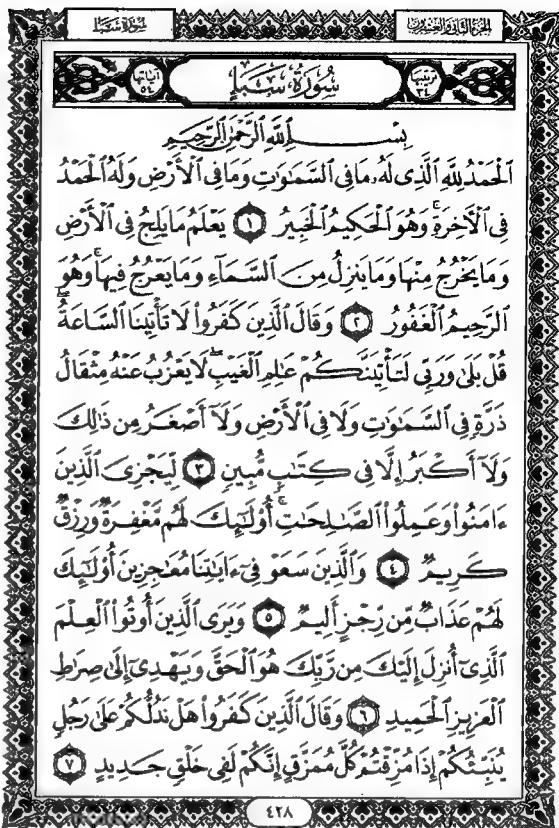 سُورَةُ سَبَإٍ
الجزء الثاني والعشرون
ترتيبها ٣٤
سُورَةُ سَبَإٍ
آياتها ٥٤
بِسْمِ اللَّهِ الرَّحْمَٰنِ الرَّحِيمِ
الْحَمْدُ لِلَّهِ الَّذِي لَهُۥ مَا فِي السَّمَٰوَٰتِ وَمَا فِي الْأَرْضِ وَلَهُ الْحَمْدُ
فِي الْأٓخِرَةِ ۚ وَهُوَ الْحَكِيمُ الْخَبِيرُ ١ يَعْلَمُ مَا يَلِجُ فِي الْأَرْضِ
وَمَا يَخْرُجُ مِنْهَا وَمَا يَنزِلُ مِنَ السَّمَآءِ وَمَا يَعْرُجُ فِيهَا ۚ وَهُوَ
الرَّحِيمُ الْغَفُورُ ٢ وَقَالَ الَّذِينَ كَفَرُوا۟ لَا تَأْتِينَا السَّاعَةُ ۖ
قُلْ بَلَىٰ وَرَبِّي لَتَأْتِيَنَّكُمْ عَٰلِمِ الْغَيْبِ ۖ لَا يَعْزُبُ عَنْهُ مِثْقَالُ
ذَرَّةٍ فِي السَّمَٰوَٰتِ وَلَا فِي الْأَرْضِ وَلَآ أَصْغَرُ مِن ذَٰلِكَ
وَلَآ أَكْبَرُ إِلَّا فِي كِتَٰبٍ مُّبِينٍ ٣ لِّيَجْزِيَ الَّذِينَ
ءَامَنُوا۟ وَعَمِلُوا۟ الصَّٰلِحَٰتِ ۚ أُو۟لَٰٓئِكَ لَهُم مَّغْفِرَةٌ وَرِزْقٌ
كَرِيمٌ ٤ وَالَّذِينَ سَعَوْ فِيٓ ءَايَٰتِنَا مُعَٰجِزِينَ أُو۟لَٰٓئِكَ
لَهُمْ عَذَابٌ مِّن رِّجْزٍ أَلِيمٌ ٥ وَيَرَى الَّذِينَ أُوتُوا۟ الْعِلْمَ
الَّذِيٓ أُنزِلَ إِلَيْكَ مِن رَّبِّكَ هُوَ الْحَقَّ وَيَهْدِيٓ إِلَىٰ صِرَٰطِ
الْعَزِيزِ الْحَمِيدِ ٦ وَقَالَ الَّذِينَ كَفَرُوا۟ هَلْ نَدُلُّكُمْ عَلَىٰ رَجُلٍ
يُنَبِّئُكُمْ إِذَا مُزِّقْتُمْ كُلَّ مُمَزَّقٍ إِنَّكُمْ لَفِي خَلْقٍ جَدِيدٍ ٧
٤٢٨